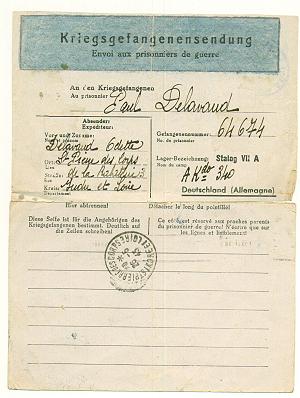 Kriegsgefangenensendung
Envoi aux prisonniers de guerre
An den Kriegsgefangenen
Au prisonnier
Paul Delavaud
Absender:
Expéditeur:
Vor- und Zuname:
Delavaud Odette
Gefangenennummer:
No. du prisonnier
64674
St Pierre des Corps
Lieu
Straße:
de la
Lager-Bezeichnung:
Nom du camp
Stalag VII A
Kreis:
Indre et Loire
A Kdo 340
Deutschland (Allemagne)
Hier abtrennen!
Détacher le long du pointillé!
Diese Seite ist für die Angehörigen des
Kriegsgefangenen bestimmt. Deutlich auf
die Zeilen schreiben!
Ce côté est réservé aux proches parents
du prisonnier de guerre! N'écrire que sur
les lignes et lisiblement!